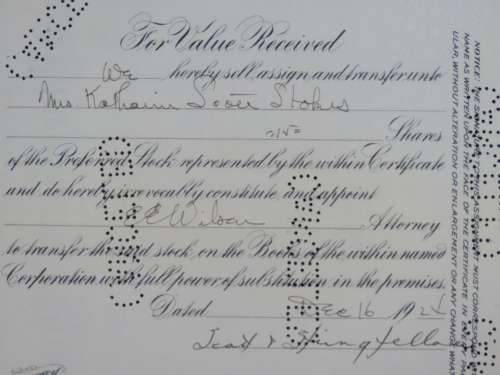 For Value Received
We hereby sell assign and transfer unto
Mrs Katharine Scott Stokes
Shares
of the Preferred Stock represented by the within Certificate
and do hereby irrevocably constitute and appoint
E C Wilson Attorney
to transfer the said stock on the Books of the within named
Corporation with full power of substitution in the premises.
Dated Dec 16 192
Scott & Stringfellow
NOTICE: THE SIGNATURE TO THIS ASSIGNMENT MUST CORRESPOND
NAME AS WRITTEN UPON THE FACE OF THE CERTIFICATE IN EVERY PA
ULAR, WITHOUT ALTERATION OR ENLARGEMENT OR ANY CHANGE WHA